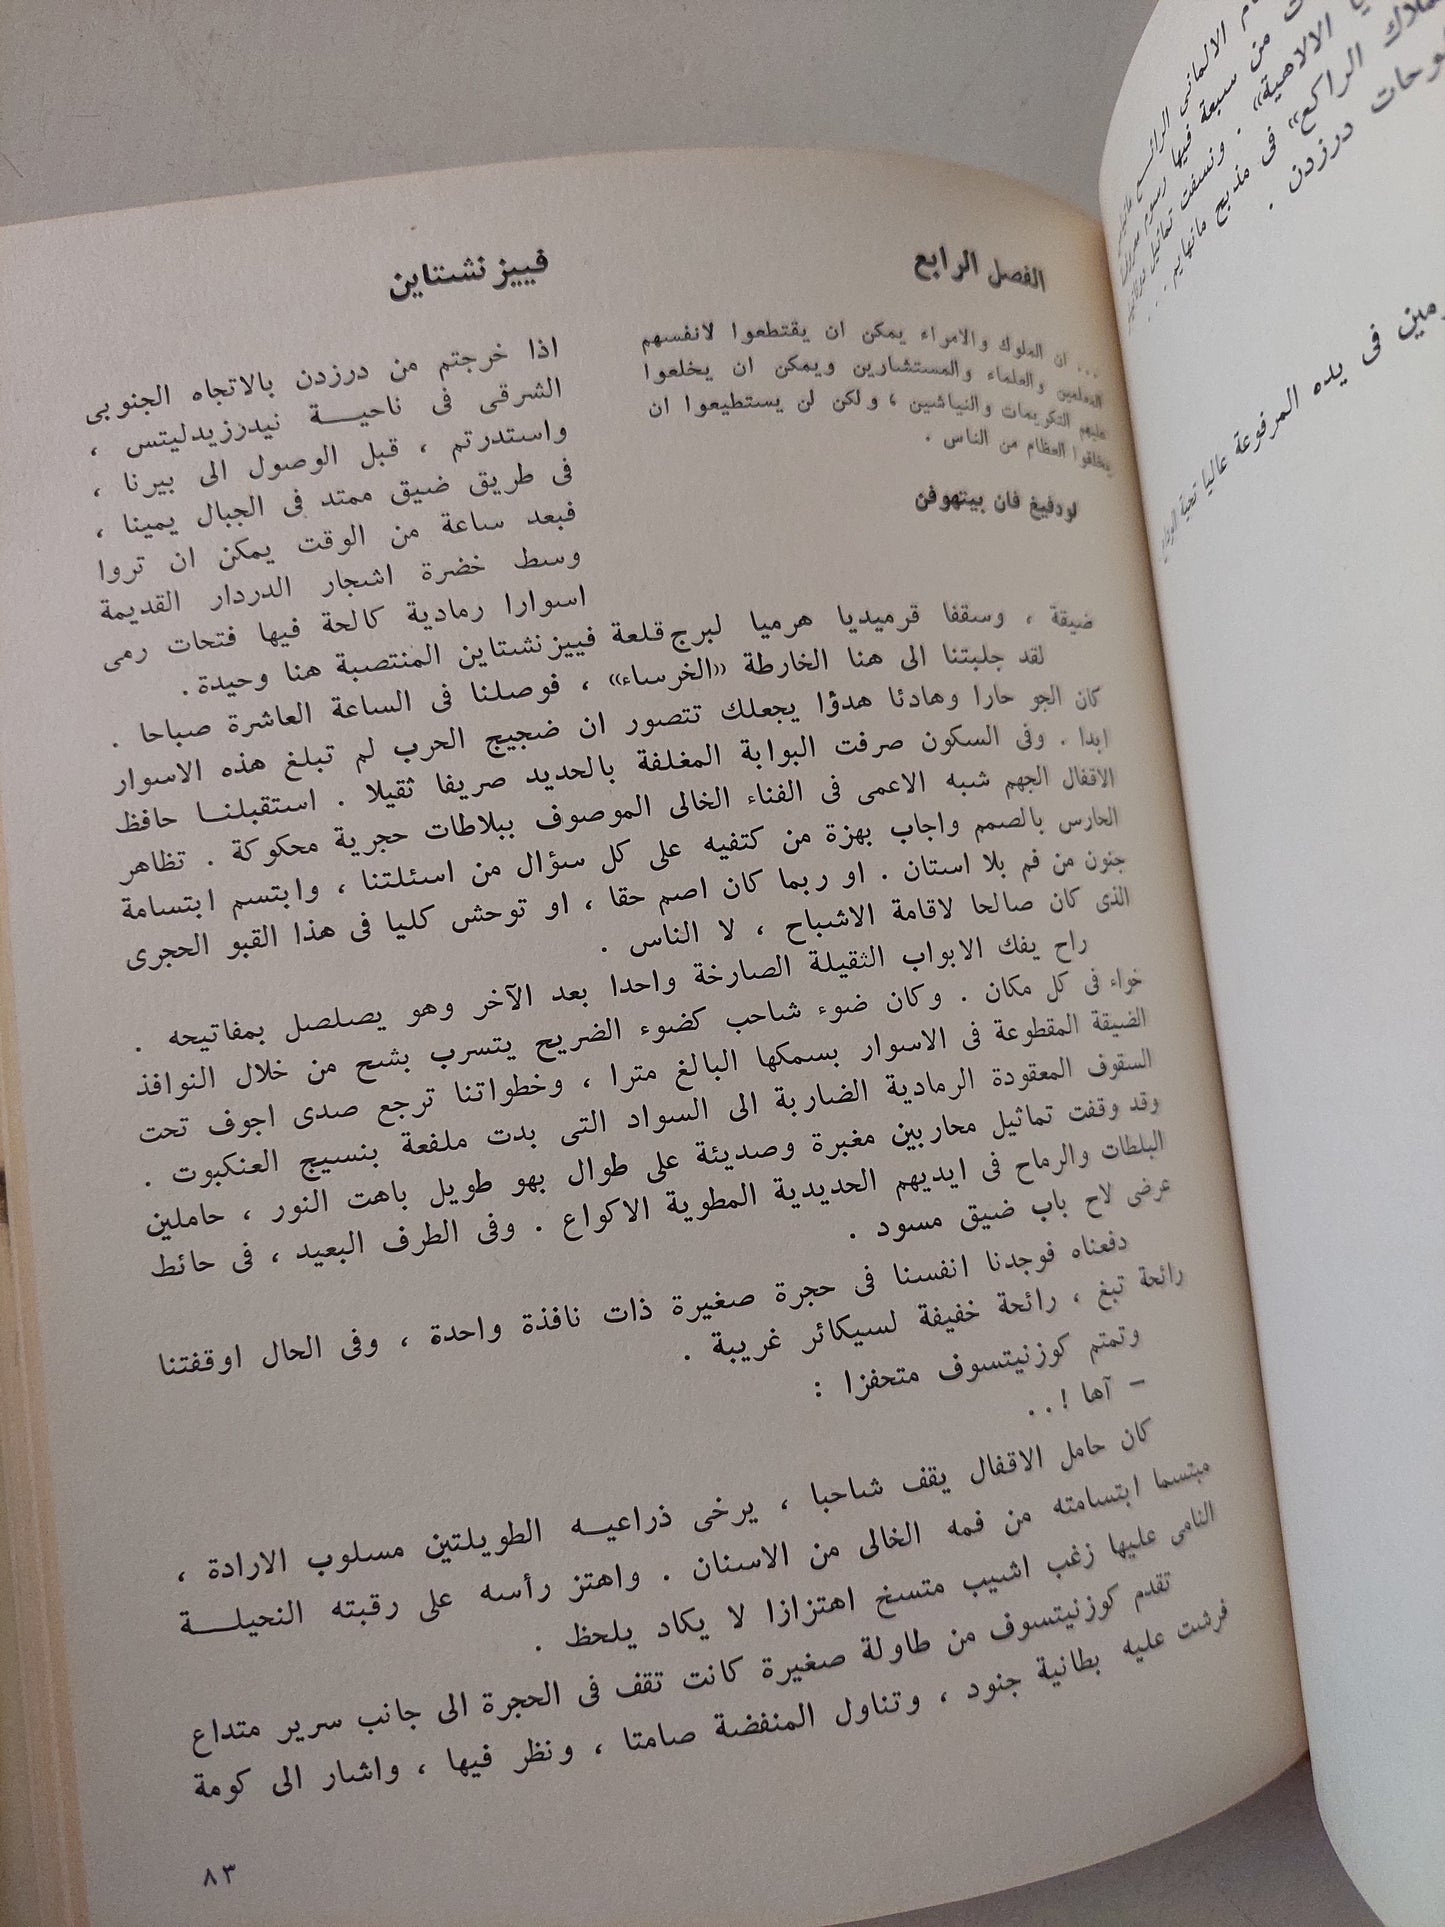 الفصل الرابع
فييزنشتاين
... ان الملوك والامراء يمكن ان يقتطعوا لانفسهم
المعلمين والعلماء والمستشارين ويمكن ان يخلعوا
عليهم التكريمات والنياشين ، ولكن لن يستطيعوا ان
يخلقوا العظام من الناس .
لودفيغ فان بيتهوفن
اذا خرجتم من درزدن بالاتجاه الجنوبى
الشرقى فى ناحيــة نيدرزيدليتس ،
واستدرتم ، قبل الوصول الى بيرنا ،
فى طريق ضيق ممتد فى الجبال يمينا ،
فبعد ساعة من الوقت يمكن ان تروا
وسط خضرة اشجار الدردار القديمة
اسوارا رمادية كالحة فيها فتحات رمى
ضيقة ، وسقفا قرميديا هرميا لبرج قلعة فييزنشتاين المنتصبة هنا وحيدة.
لقد جلبتنا الى هنا الخارطة «الخرساء» ، فوصلنا فى الساعة العاشرة صباحا .
كان الجو حارا وهادئا هدؤا يجعلك تتصور ان ضجيج الحرب لم تبلغ هذه الاسوار
ابدا . وفى السكون صرفت البوابة المغلفة بالحديد صريفا ثقيلا . استقبلنــا حافظ
الاقفال الجهم شبه الاعمى فى الفناء الخالى الموصوف ببلاطات حجرية محكوكة . تظاهر
الحارس بالصمم واجاب بهزة من كتفيه على كل سؤال من اسئلتنا ، وابتسم ابتسامة
جنون من فم بلا استان . او ربما كان اصم حقا ، او توحش كليا فى هذا القبو الحجرى
الذى كان صالحا لاقامة الاشباح ، لا الناس .
راح يفك الابواب الثقيلة الصارخة واحدا بعد الآخر وهو يصلصل بمفاتيحه .
خواء فى كل مكان . وكان ضوء شاحب كضوء الضريح يتسرب بشح من خلال النوافذ
الضيقة المقطوعة فى الاسوار بسمكها البالغ مترا ، وخطواتنا ترجع صدى اجوف تحت
السقوف المعقودة الرمادية الضاربة الى السواد التى بدت ملفعة بنسيج العنكبوت .
وقد وقفت تماثيل محاربين مغبرة وصديئة على طوال بهو طويل باهت النور ، حاملين
البلطات والرماح فى ايديهم الحديدية المطوية الاكواع . وفى الطرف البعيد ، فى حائط
عرضى لاح باب ضيق مسود .
دفعناه فوجدنا انفسنا فى حجرة صغيرة ذات نافذة واحدة ، وفى الحال اوقفتنا
رائحة تبغ ، رائحة خفيفة لسيكائر غريبة .
وتمتم كوزنيتسوف متحفزا :
– آها ! . .
كان حامل الاقفال يقف شاحبا ، يرخى ذراعيــه الطويلتين مسلوب الارادة ،
مبتسما ابتسامته من فمه الخالى من الاسنان . واهتز رأسه على رقبته النحيلــة
النامى عليها زغب اشيب متسخ اهتزازا لا يكاد يلحظ .
تقدم كوزنيتسوف من طاولة صغيرة كانت تقف فى الحجرة الى جانب سرير متداع
فرشت عليه بطانية جنود ، وتناول المنفضة صامتا ، ونظر فيها ، واشار الى كومة
٨٣
الالمانى
من سبعة فيها رسوم
الالاهية» . ونسفت تماثيل
الراكع» فى مذبح مانهايم . . .
درزدن .
فى يده المرفوعة عاليا تحية